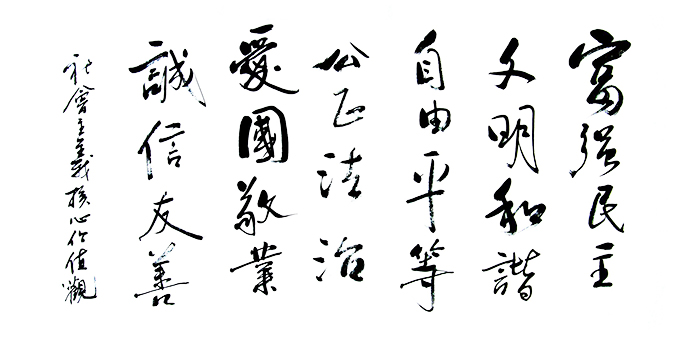 富强民主
文明和諧
自由平等
公正法治
愛國敬業
誠信友善
社會主義核心价值觀